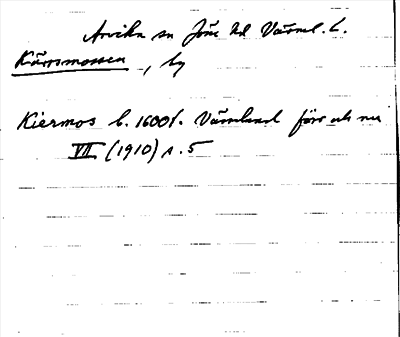 Arvika sn Jöse hd Värml. l.
Kärrsmossen, by
Kiermos b. 1600 t. Värmland förr och nu
VII (1910) s. 5